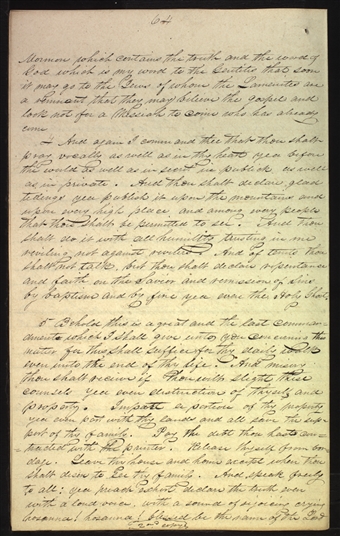 64
Mormon which contains the truth and the word of
God which is my word to the Gentiles that soon
it may go to the Jews of whom the Lamanites are
a remnant that they may believe the gospel and
look not for a Messiah to come who has already
come
4 And again I command thee that thou shalt
pray vocally as well as in thy heart yea before
the world as well as in secret in publick as well
as in private. And thou shalt declare glad
tidings yea publish it upon the mountains and
upon every high place and among every people
that thou shalt be permitted to see. And thou
shalt do it with all humility trusting in me
reviling not against revilers And of tenets thou
shalt not talk, but thou shalt declare repentance
and faith on the Savior and remission of sins
by baptism and by fire yea even the Holy Ghost.
5 Behold this is a great and the last command-
ment which I shall give unto you concerning this
matter for this shall suffice for thy daily walk
even unto the end of thy life. And misery
thou shalt receive if thou wilt slight these
counsels yea even distruction of thyself and
property. Impart a portion of thy property
yea even part with thy lands and all save the sup-
port of thy family. Pay the debt thou hast con-
tracted with the printer. Release thyself from bon-
dage. Leave thy house and home except when thou
shalt desire to see thy family. And speak freely
to all: yea preach exhort declare the truth even
with a loud voice, with a sound of rejoicing crying
hosanna! hosanna! blessed be the name of the Lord